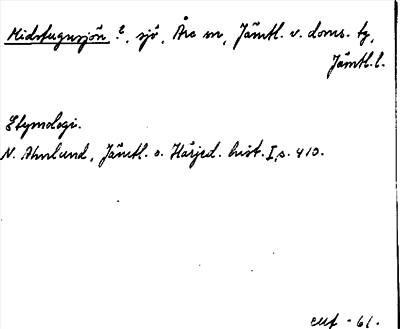 Midstugusjön ?, sjö, Åre sn, Jämtl. v. doms. tg,
Jämtl. l.
Etymologi.
N. Ahnlund, Jämtl. o. Härjed. hist. I, s. 410.
- 61.